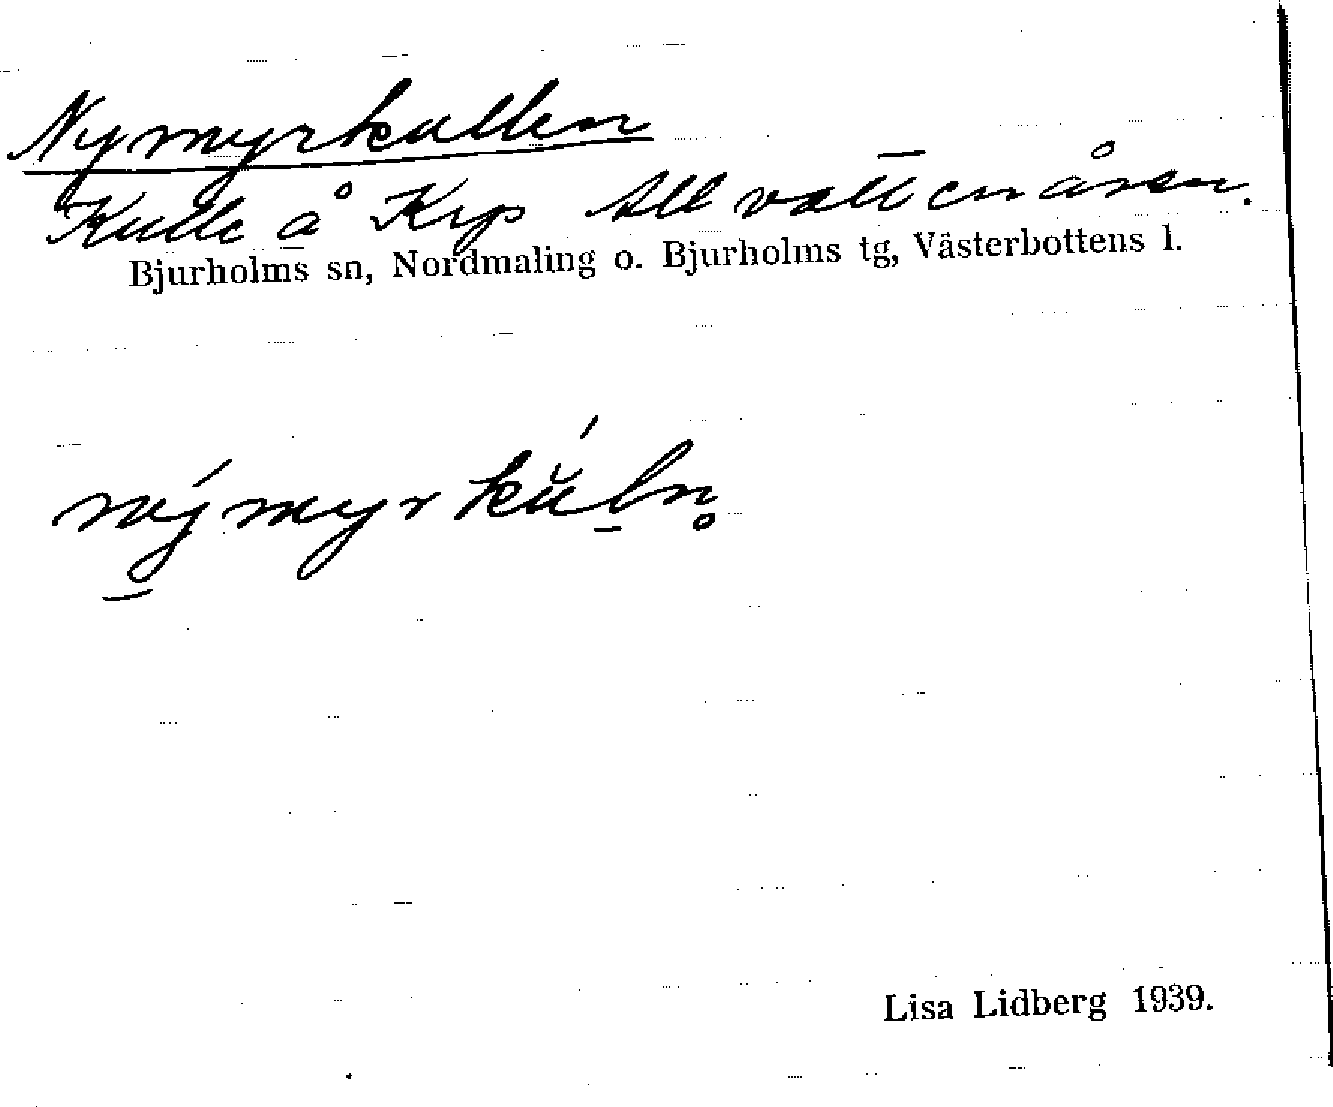 Nymyrkullen
Kulle å Krp Allvattenåsen.
Bjurholms sn, Nordmaling o. Bjurholms tg, Västerbottens l.
Lisa Lidberg 1939.